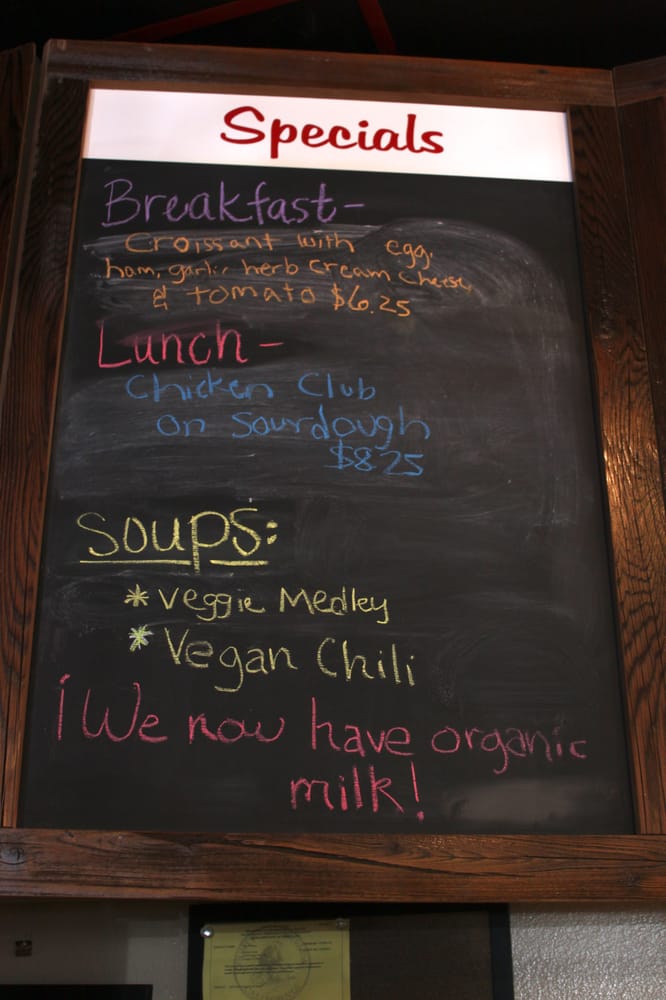 Specials
Breakfast-
Croissant with egg,
ham, garlic herb cream cheese,
& tomato $6.25
Lunch-
Chicken Club
on Sourdough
$8.25
Soups:
*Veggie Medley
*Vegan Chili
¡We now have organic
milk!